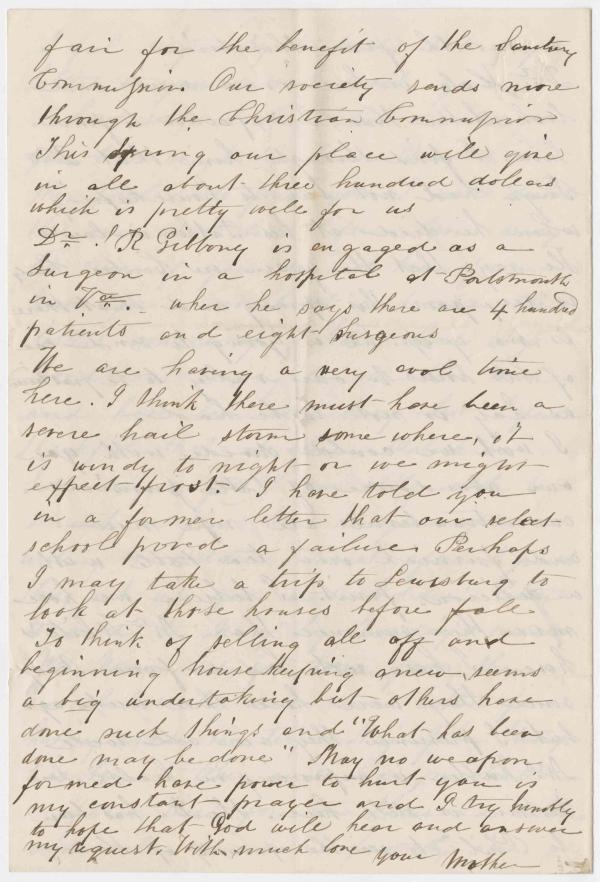 fair for the benefit of the Sanitary
Commission. Our society sends more
through the Christian Commission
This Spring our place will give
in all about three hundred dollars
which is pretty well for us
Dr. ! R Gibboney is engaged as a
Surgeon in a hospital at Portsmouth
in Va. wher he says there are 4 hundred
patients and eight Surgeons
We are having a very cool time
here. I think there must have been a
severe hail storm some where, it
is windy to night or we might
expect frost. I have told you
in a former letter that our select
school proved a failure Perhaps
I may take a trip to Lewisburg to
look at those houses before fall
To think of selling all off and
beginning housekeeping anew seems
a big undertaking but others have
done such things and "What has been
done may be done" May no weapon
formed have power to hurt you is
my constant prayer and I try humbly
to hope that God will hear and answer
my request. With much love your Mother